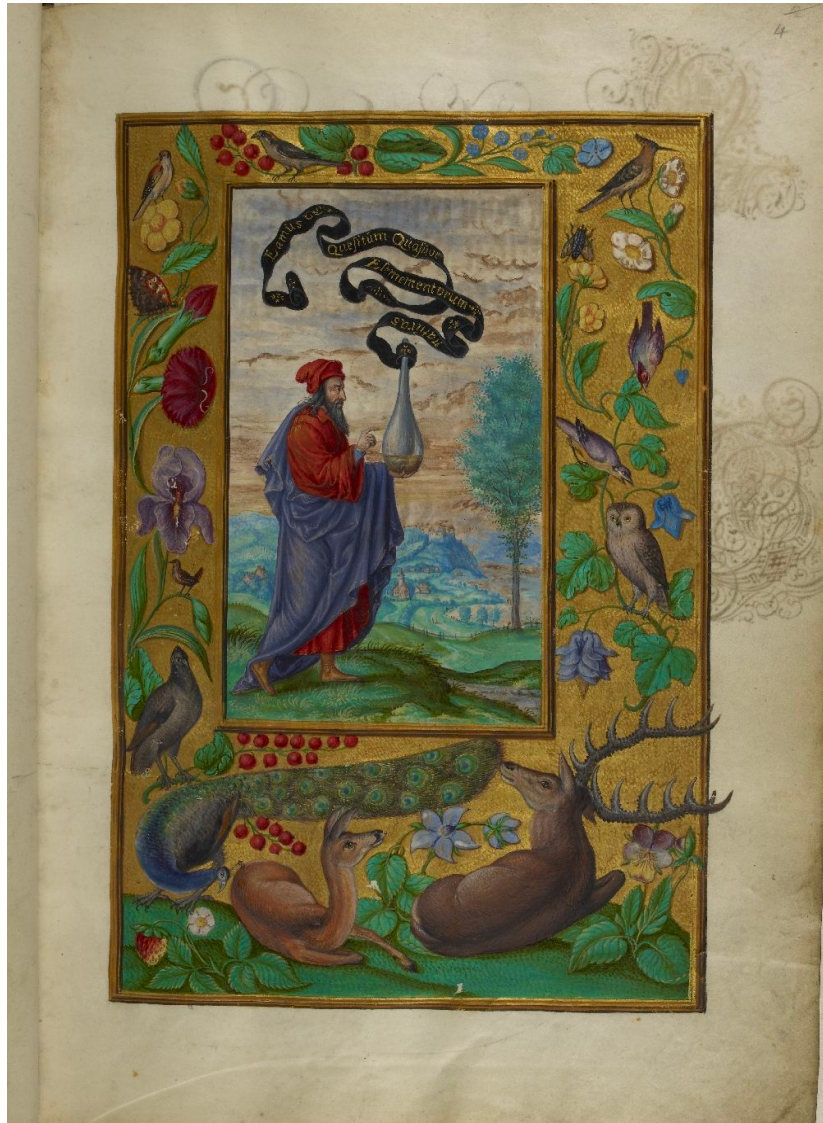 4
Eamus
Quesitum Quatuor
Elementorum
naturas